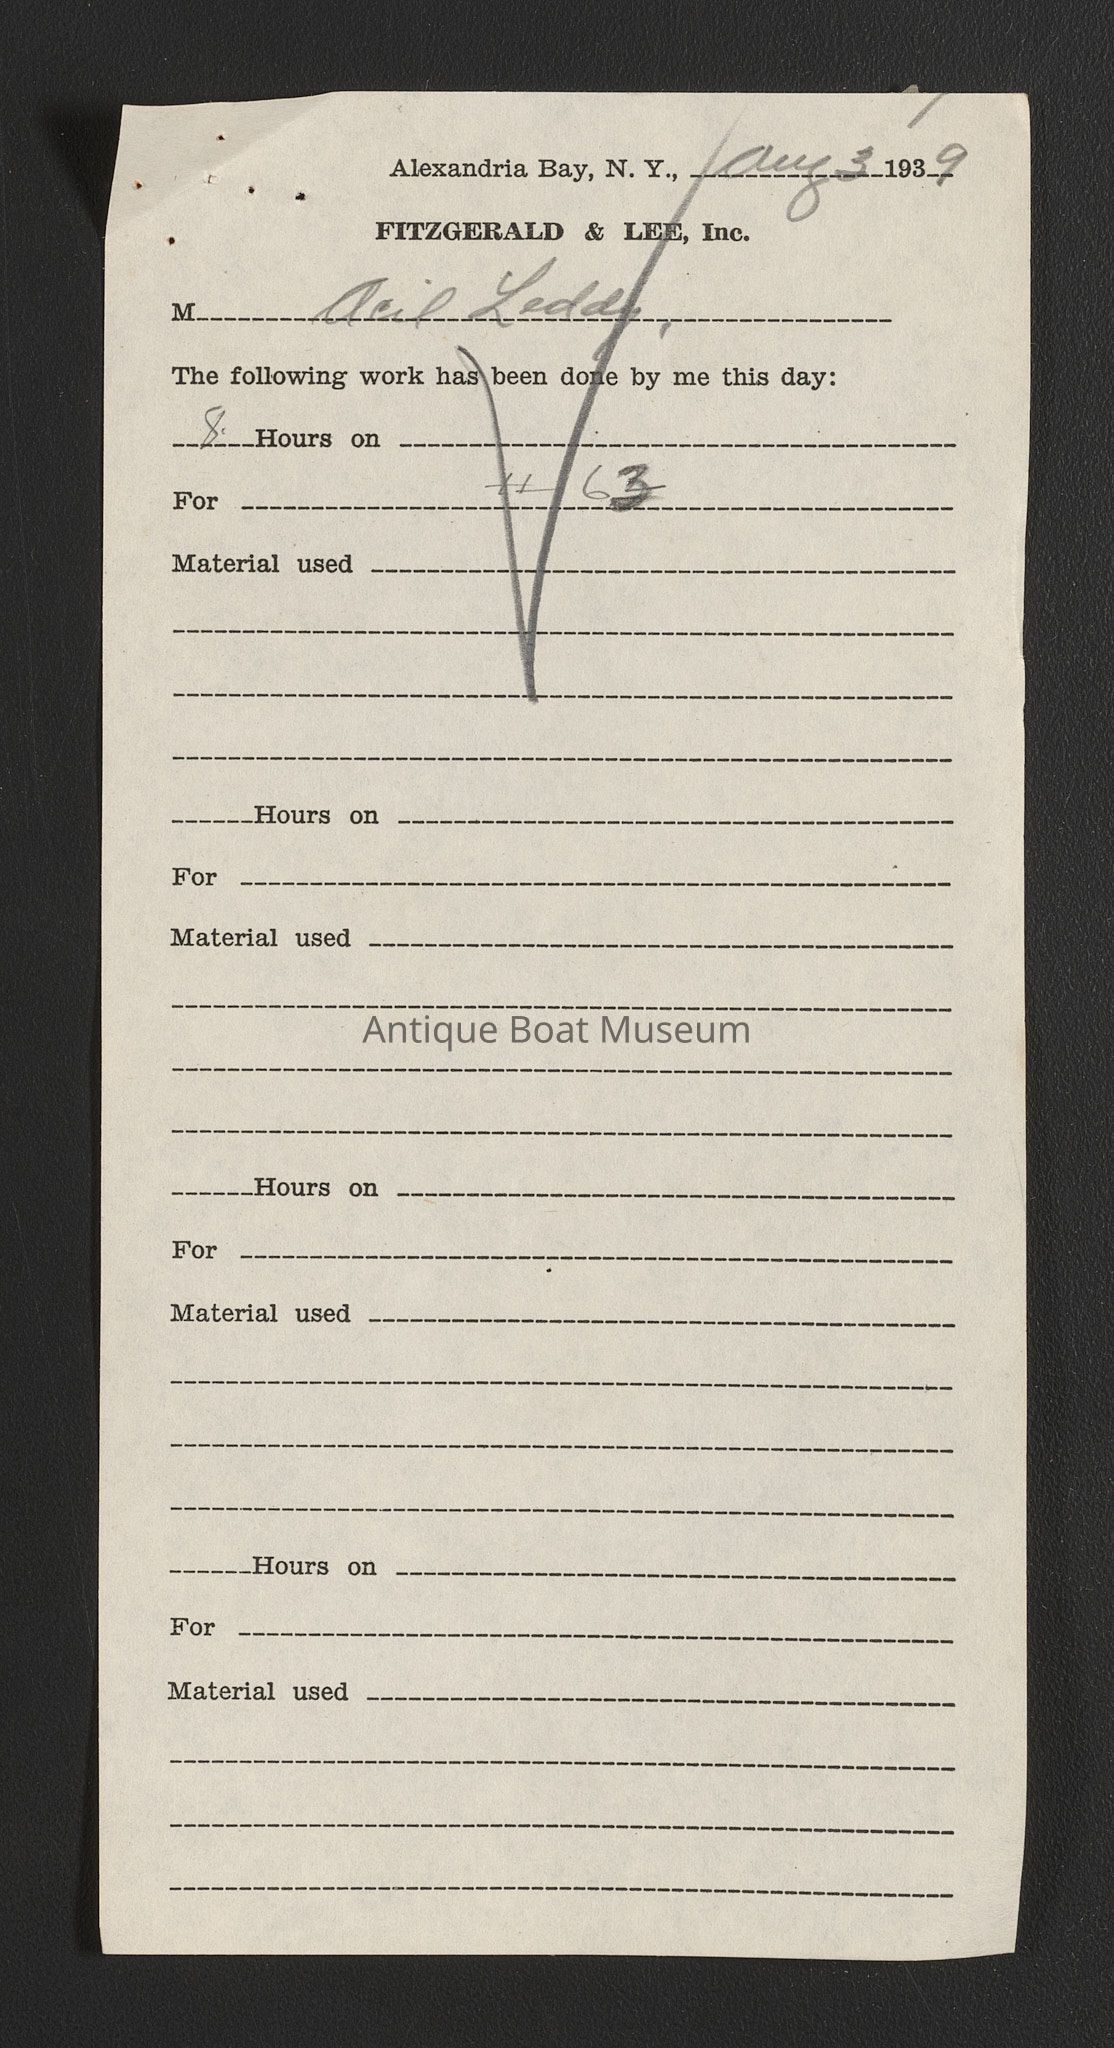 Alexandria Bay, N. Y., Aug 3 1939
FITZGERALD & LEE, Inc.
M Leddy,
The following work has been done by me this day:
8 Hours on
For # 63
Material used
Hours on
For
Material used
Antique Boat Museum
Hours on
For
Material used
Hours on
For
Material used